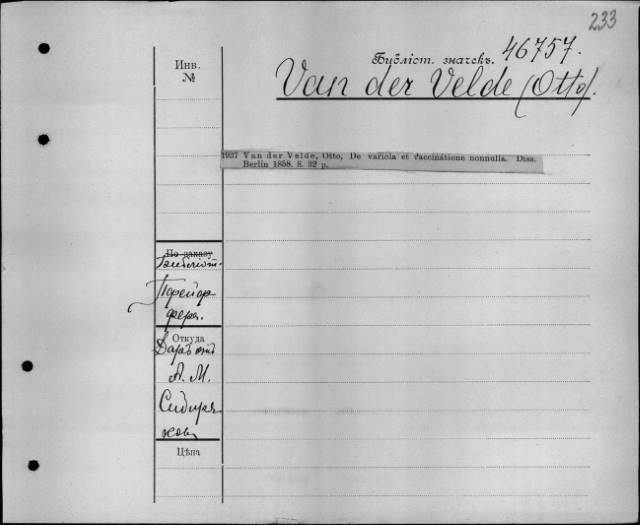 233
Инв.
№
Бібліот. значекъ. 46757.
Van der Velde (Otto).
1937 Van der Velde, Otto, De variola et vaccinatione nonnulla. Diss.
Berlin 1858. 8. 32 p.
По заказу
Библіот.
Пфейф
фера.
Откуда
Даръ
А. М.
Сибиря
кова
Цѣна